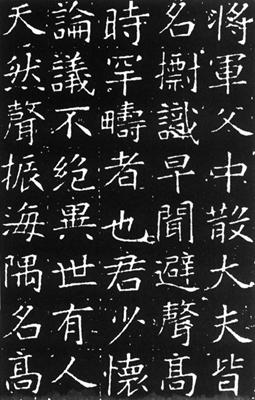 將軍父中散大夫皆
名識早聞避聲髙
時罕疇者也君少懷
論議不絶異世有人
天然聲振海隅名髙